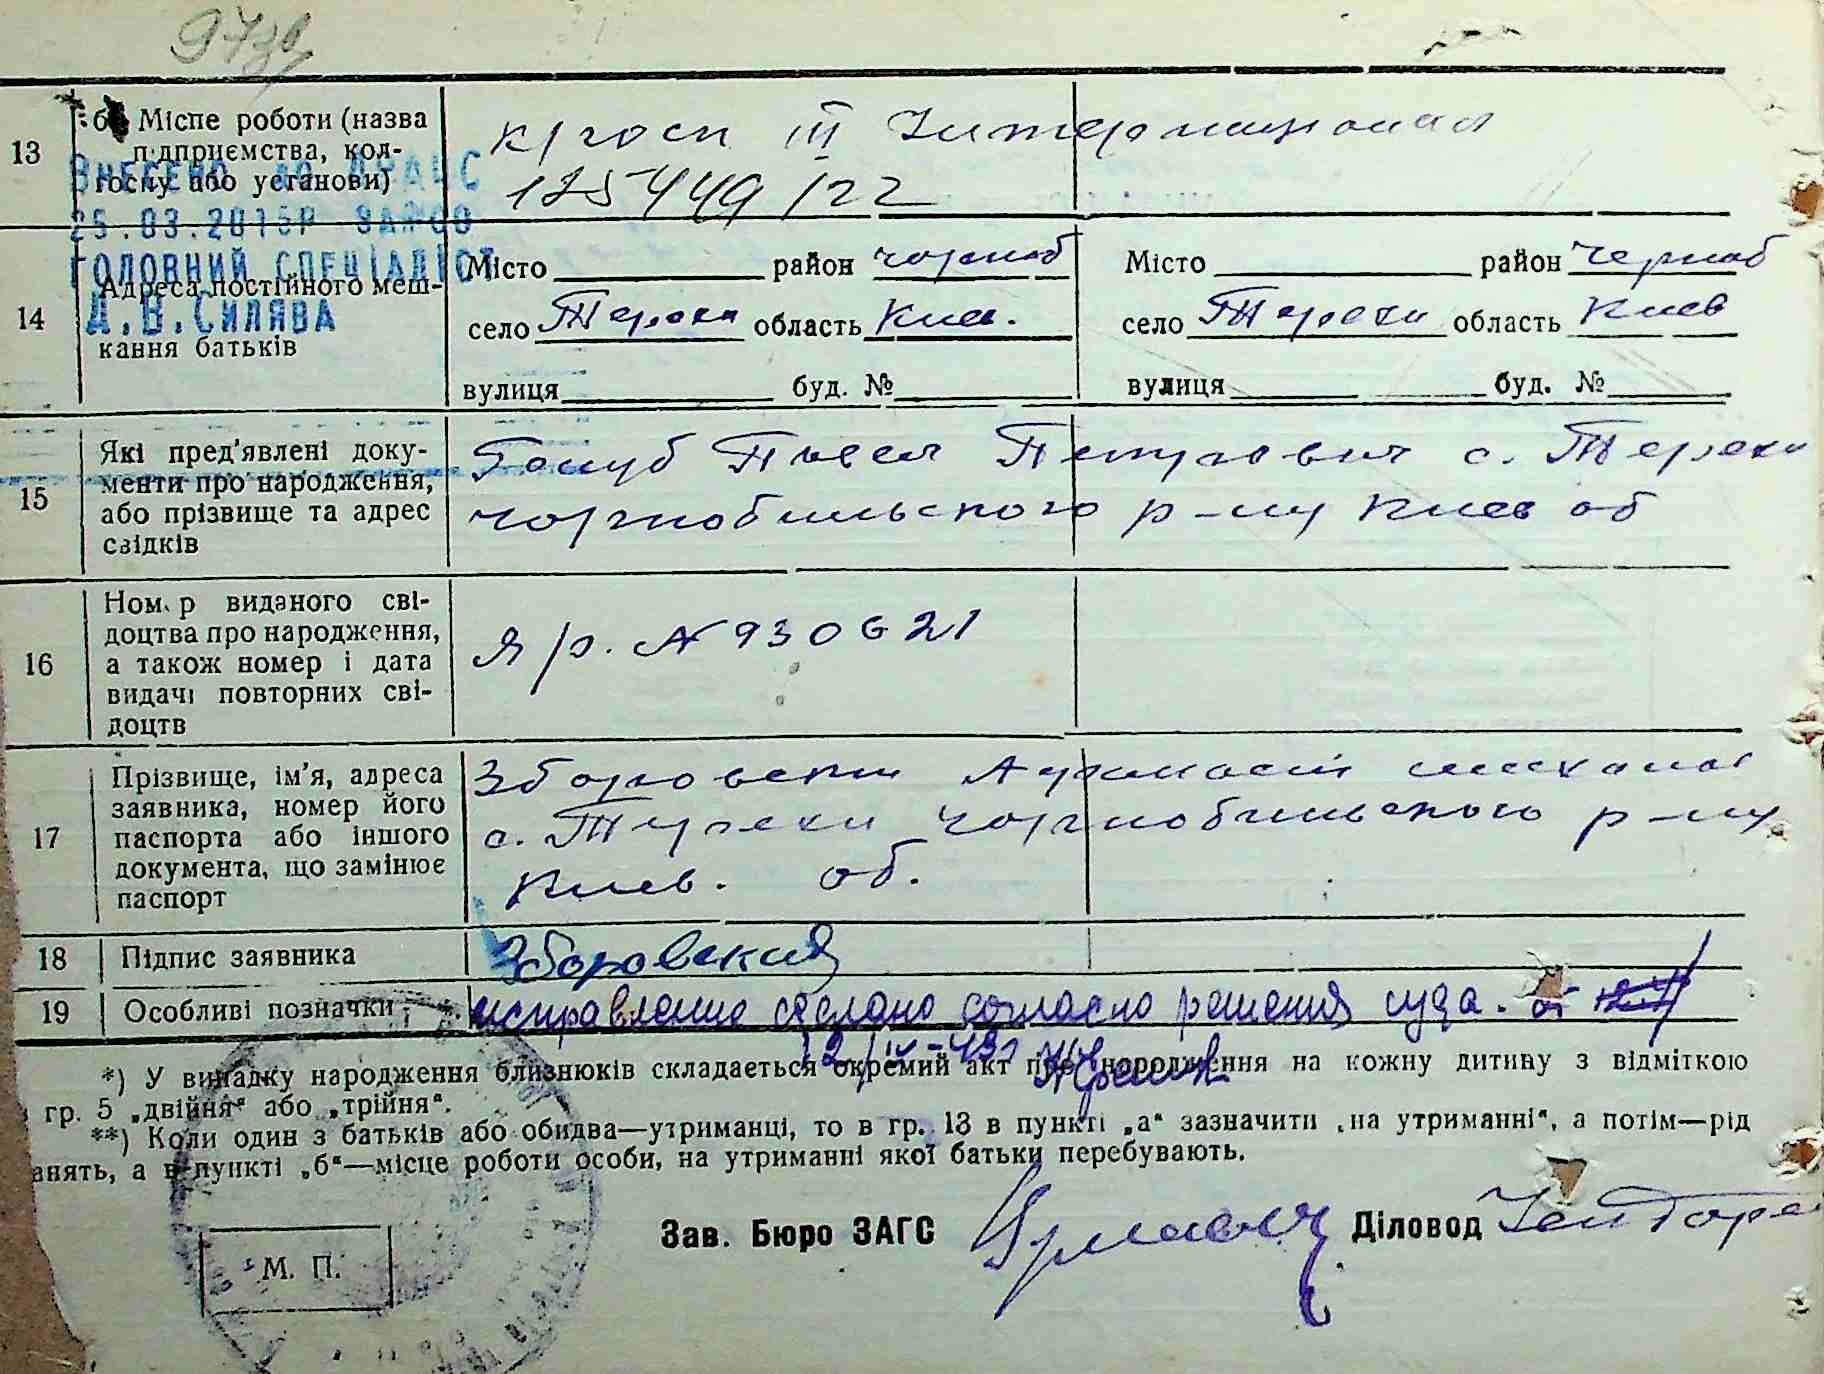 13
б) Місце роботи (назва
підприємства, кол-
госпу або установи)
ВНЕСЕНО ДО ДРАЦС
25.03.2015Р
ГОЛОВНИЙ СПЕЦІАЛІСТ
Д.В.СИЛЯВА
III Интернационал
125449/22
14
Адреса постійного меш-
кання батьків
Місто район чорноб
село Терехи область Киев.
вулиця буд. №
Місто район Черноб
село Терехи область Киев
вулиця буд. №
15
Які пред'явлені доку-
менти про народження,
або прізвище та адрес
свідків
Голуб Павел Петрович с. Терехи
чорнобильського р-ну Киев об
16
Номер виданого сві-
доцтва про народження,
а також номер і дата
видачі повторних сві-
доцтв
№ 930621
17
Прізвище, ім'я, адреса
заявника, номер його
паспорта або іншого
документа, що замінює
паспорт
Зборовски
с. Терехи чорнобильського р-ну
Киев. об.
18
Підпис заявника
Зборовский
19
Особливі позначки
исправление сделано согласно решения суда. от
12/IV-49г
*) У випадку народження близнюків складається окремий акт про народження на кожну дитину з відміткою
гр. 5 „двійня“ або „трійня“.
**) Коли один з батьків або обидва—утриманці, то в гр. 13 в пункті „а“ зазначити „на утриманні“, а потім—рід
анять, а в пункті „б“—місце роботи особи, на утриманні якої батьки перебувають.
Зав. Бюро ЗАГС Діловод
М. П.